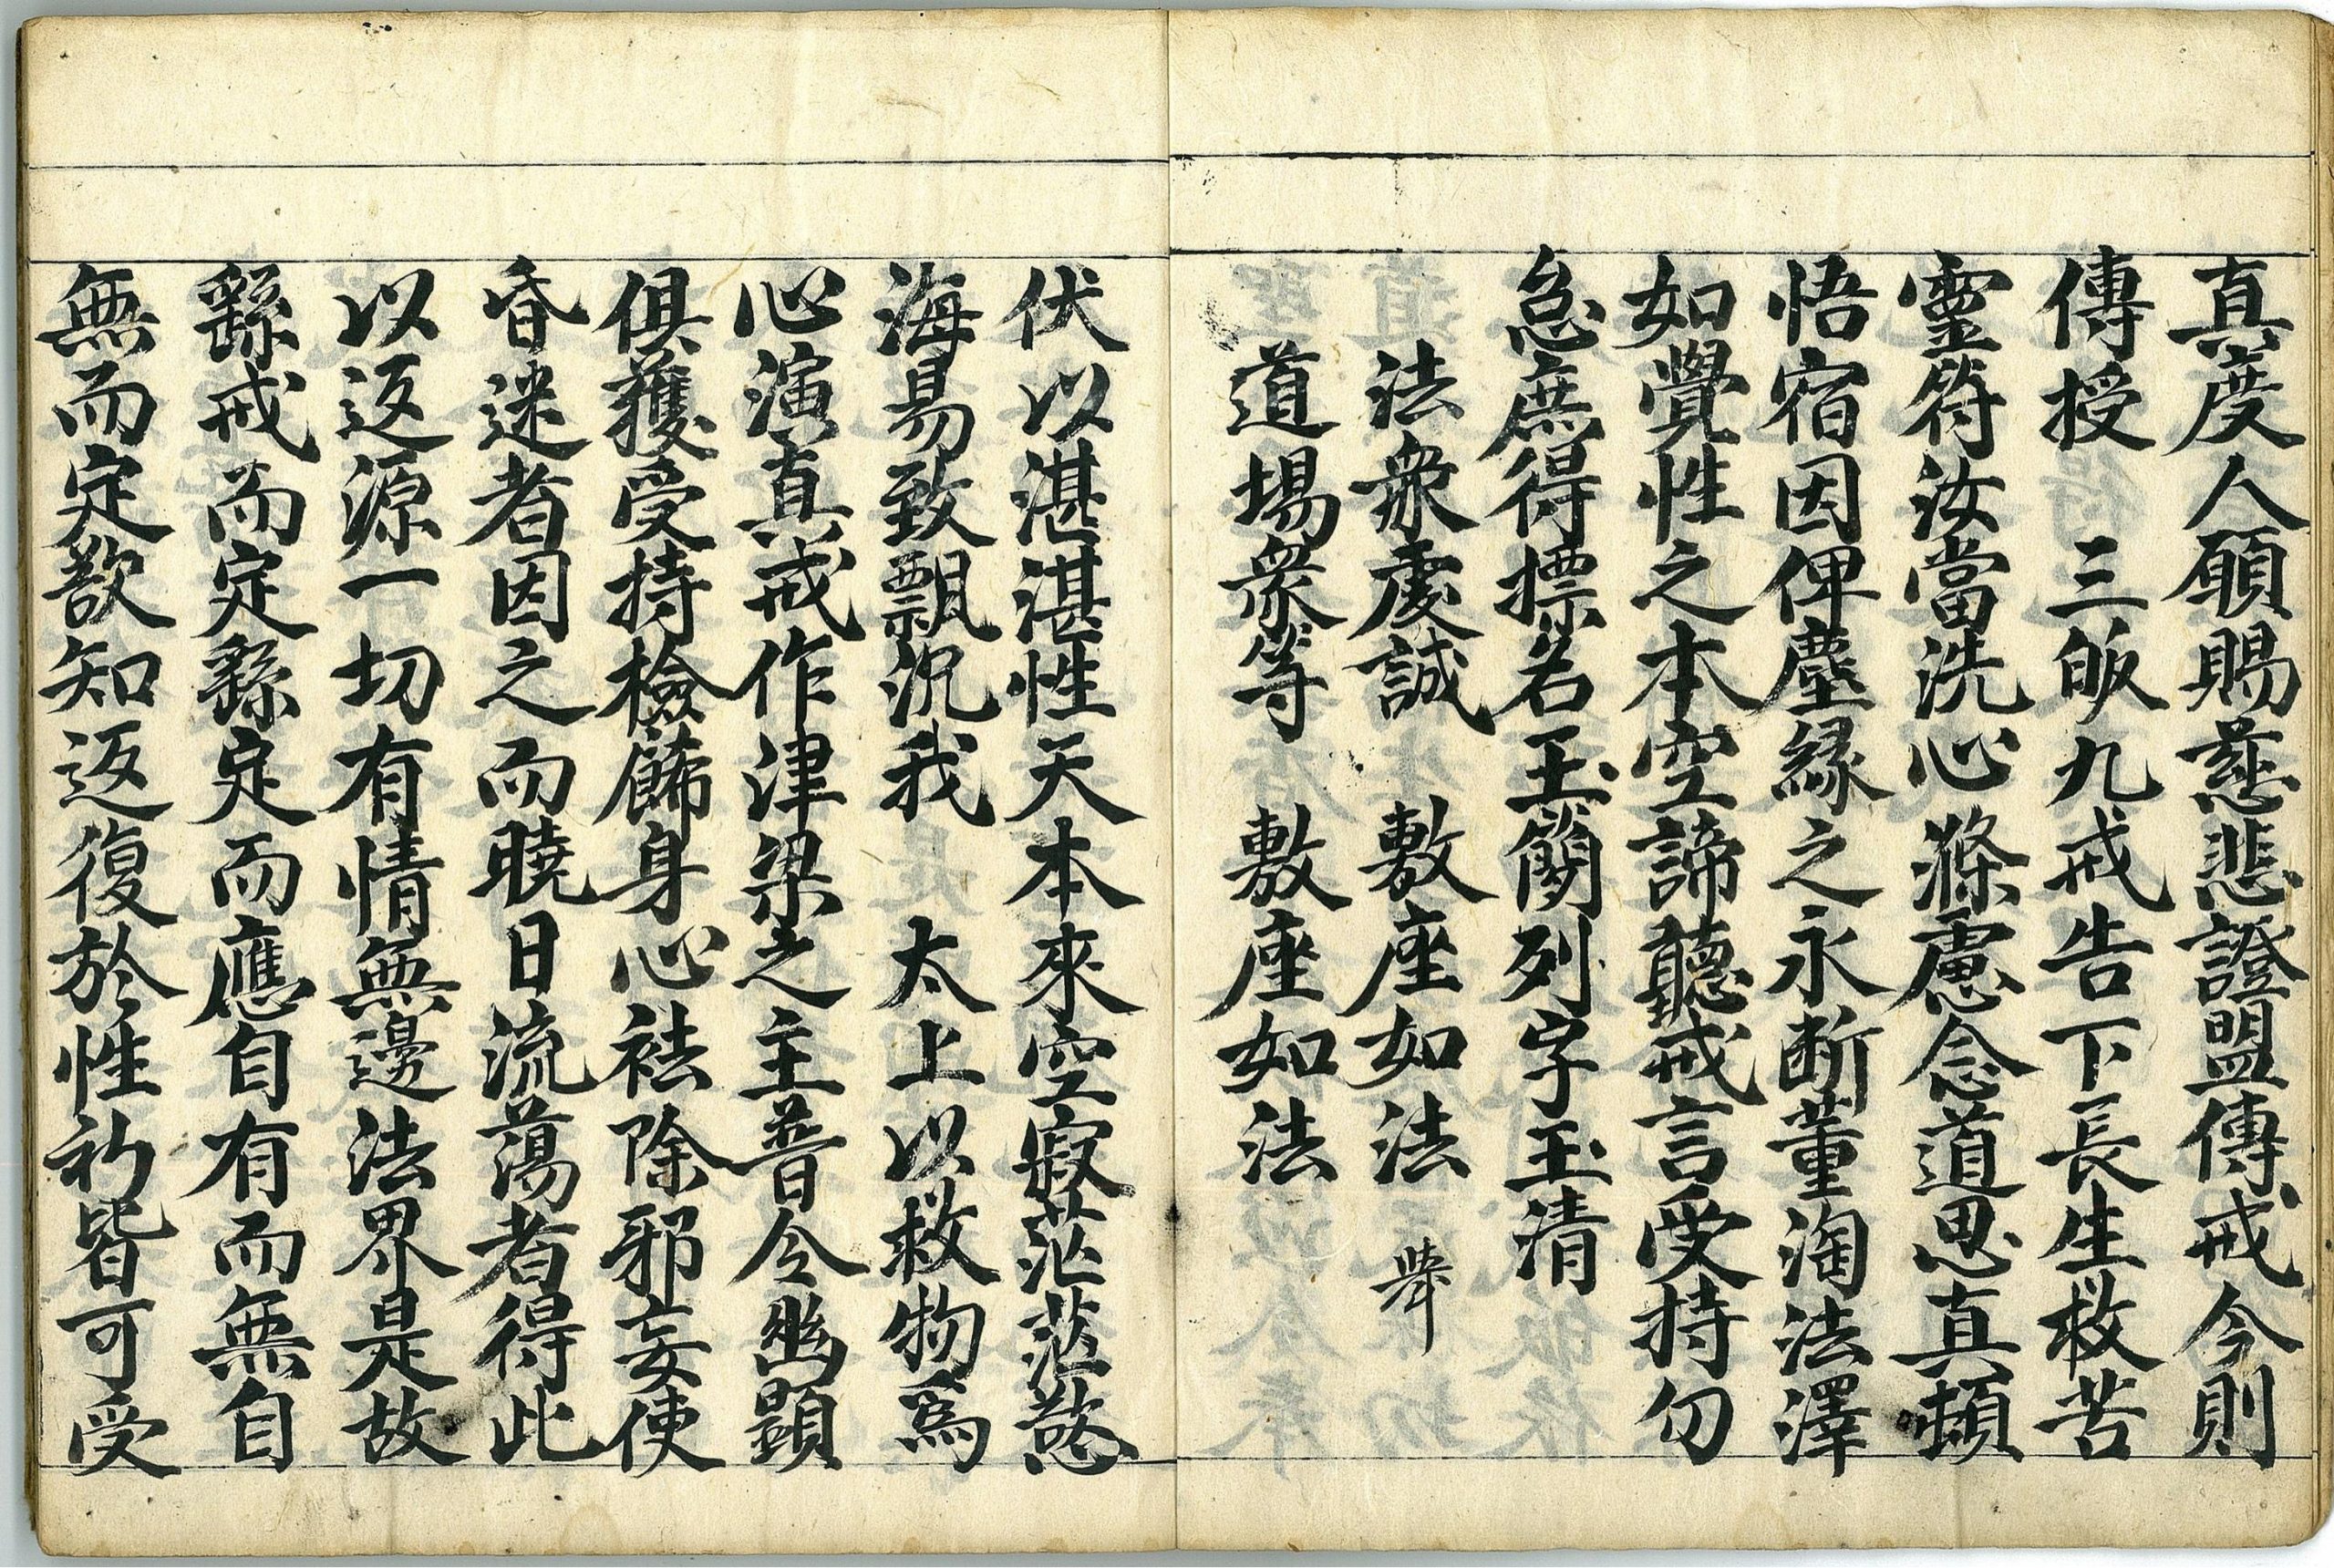 真度人願賜慈悲證盟傳戒今則
傳授　三皈九戒告下長生救苦
靈符汝當洗心滌慮念道思真頓
悟宿因俾塵緣之永断董淘法澤
如覺性之本空諦聽戒言受持勿
怠庶得摽名玉簡列字玉清
法衆虔誠　敷座如法　举
道場衆等　敷座如法
伏以湛湛性天本來空寂茫茫慾
海易致飄沉我　太上以救物爲
心演真戒作津梁之主普令幽顯
俱獲受持檢飾身心祛除邪妄使
昏迷者因之而曉日流蕩者得此
以返源一切有情無邊法界是故
繇戒而定繇定而應自有而無自
無而定欲知返復於性初皆可受